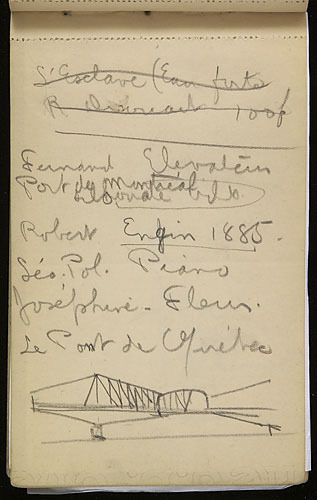 L'Esclave (Eau forte
R 100f
Fernand Elevateur
Port de Montréal
Robert Engin 1885.
Léo-Pol. Piano
Joséphine - Fleur.
Le Pont de Québec